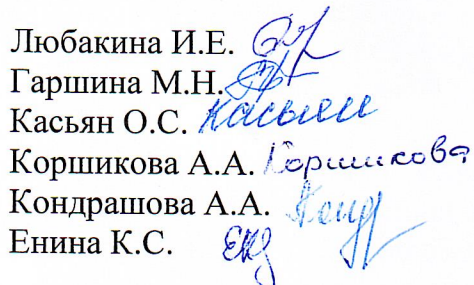 Любакина И.Е.
Гаршина М.Н.
Касьян О.С. Касьян
Коршикова А.А. Коршикова
Кондрашова А.А. Конд
Енина К.С.